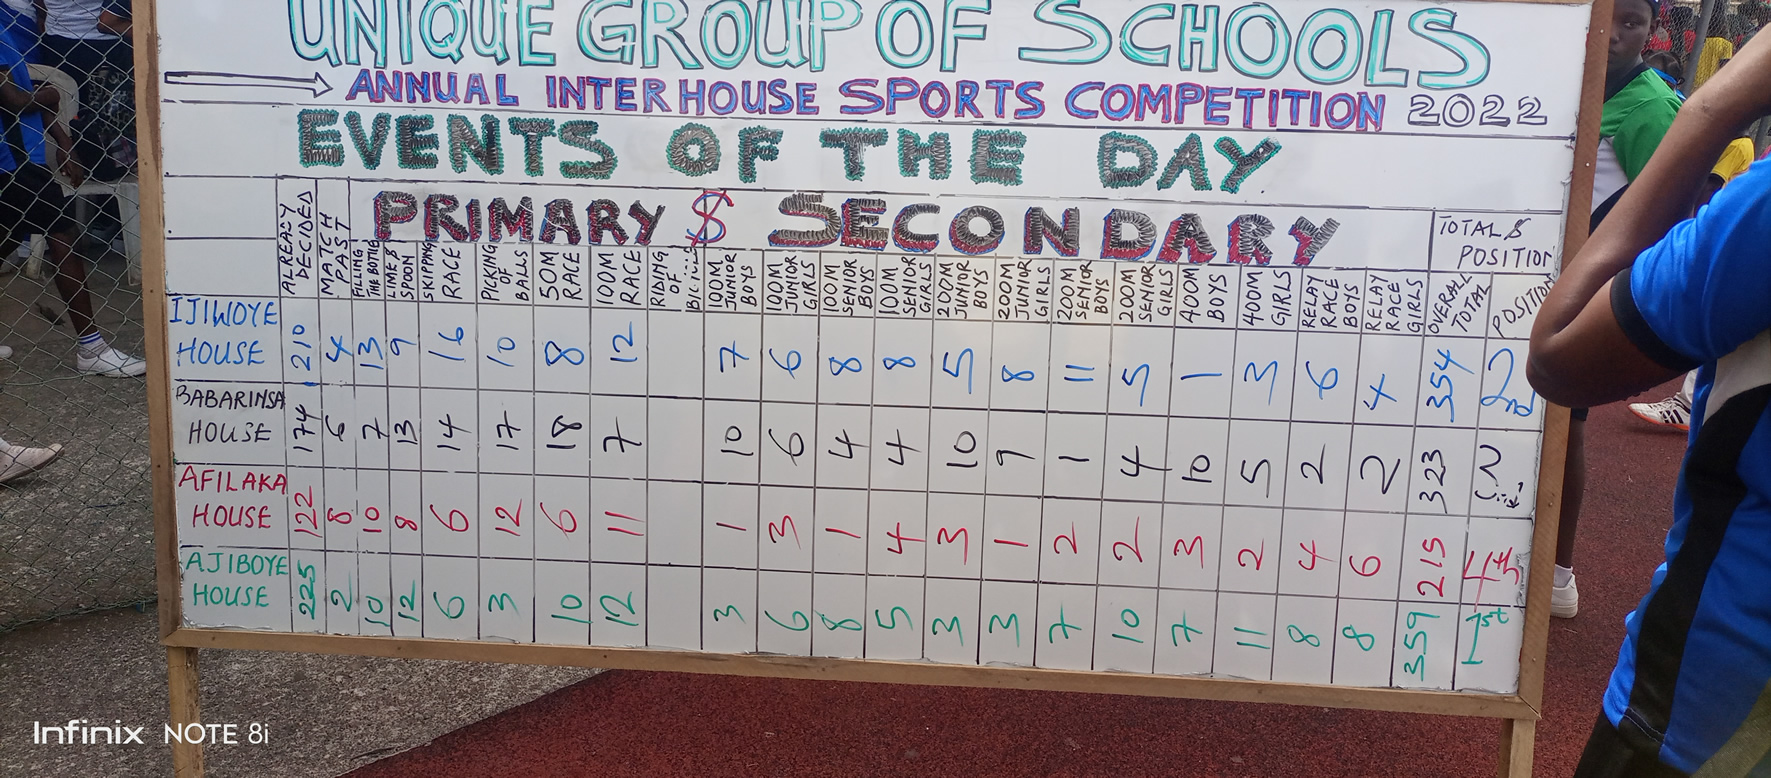 UNIQUE GROUP OF SCHOOLS
ANNUAL INTERHOUSE SPORTS COMPETITION 2022
EVENTS OF THE DAY
PRIMARY $ SECONDARY
TOTAL $ POSITION
ALREADY DECIDED MATCH PAST FILLING THE BOTTLE LIME $ SPOON SKIPPING RACE PICKING OF BALLS 50M RACE 100M RACE RIDING OF 100M JUNIOR BOYS 100M JUNIOR GIRLS 100M SENIOR BOYS 100M SENIOR GIRLS 200M JUNIOR BOYS 200M JUNIOR GIRLS 200M SENIOR BOYS 200M SENIOR GIRLS 400M BOYS 400M GIRLS RELAY RACE BOYS RELAY RACE GIRLS OVERALL TOTAL POSITION
IJIWOYE HOUSE 210 4 13 9 16 10 8 12 7 6 8 8 5 8 11 5 1 3 6 4 354 2nd
BABARINSA HOUSE 174 6 7 13 14 17 18 7 10 6 4 4 10 9 1 4 10 5 2 2 323
AFILAKA HOUSE 122 8 10 8 6 12 6 11 1 3 1 4 3 1 2 2 3 2 4 6 215 4th
AJIBOYE HOUSE 225 2 10 12 6 3 10 12 3 6 8 5 3 3 7 10 7 11 8 8 359 1st
Infinix NOTE 8i